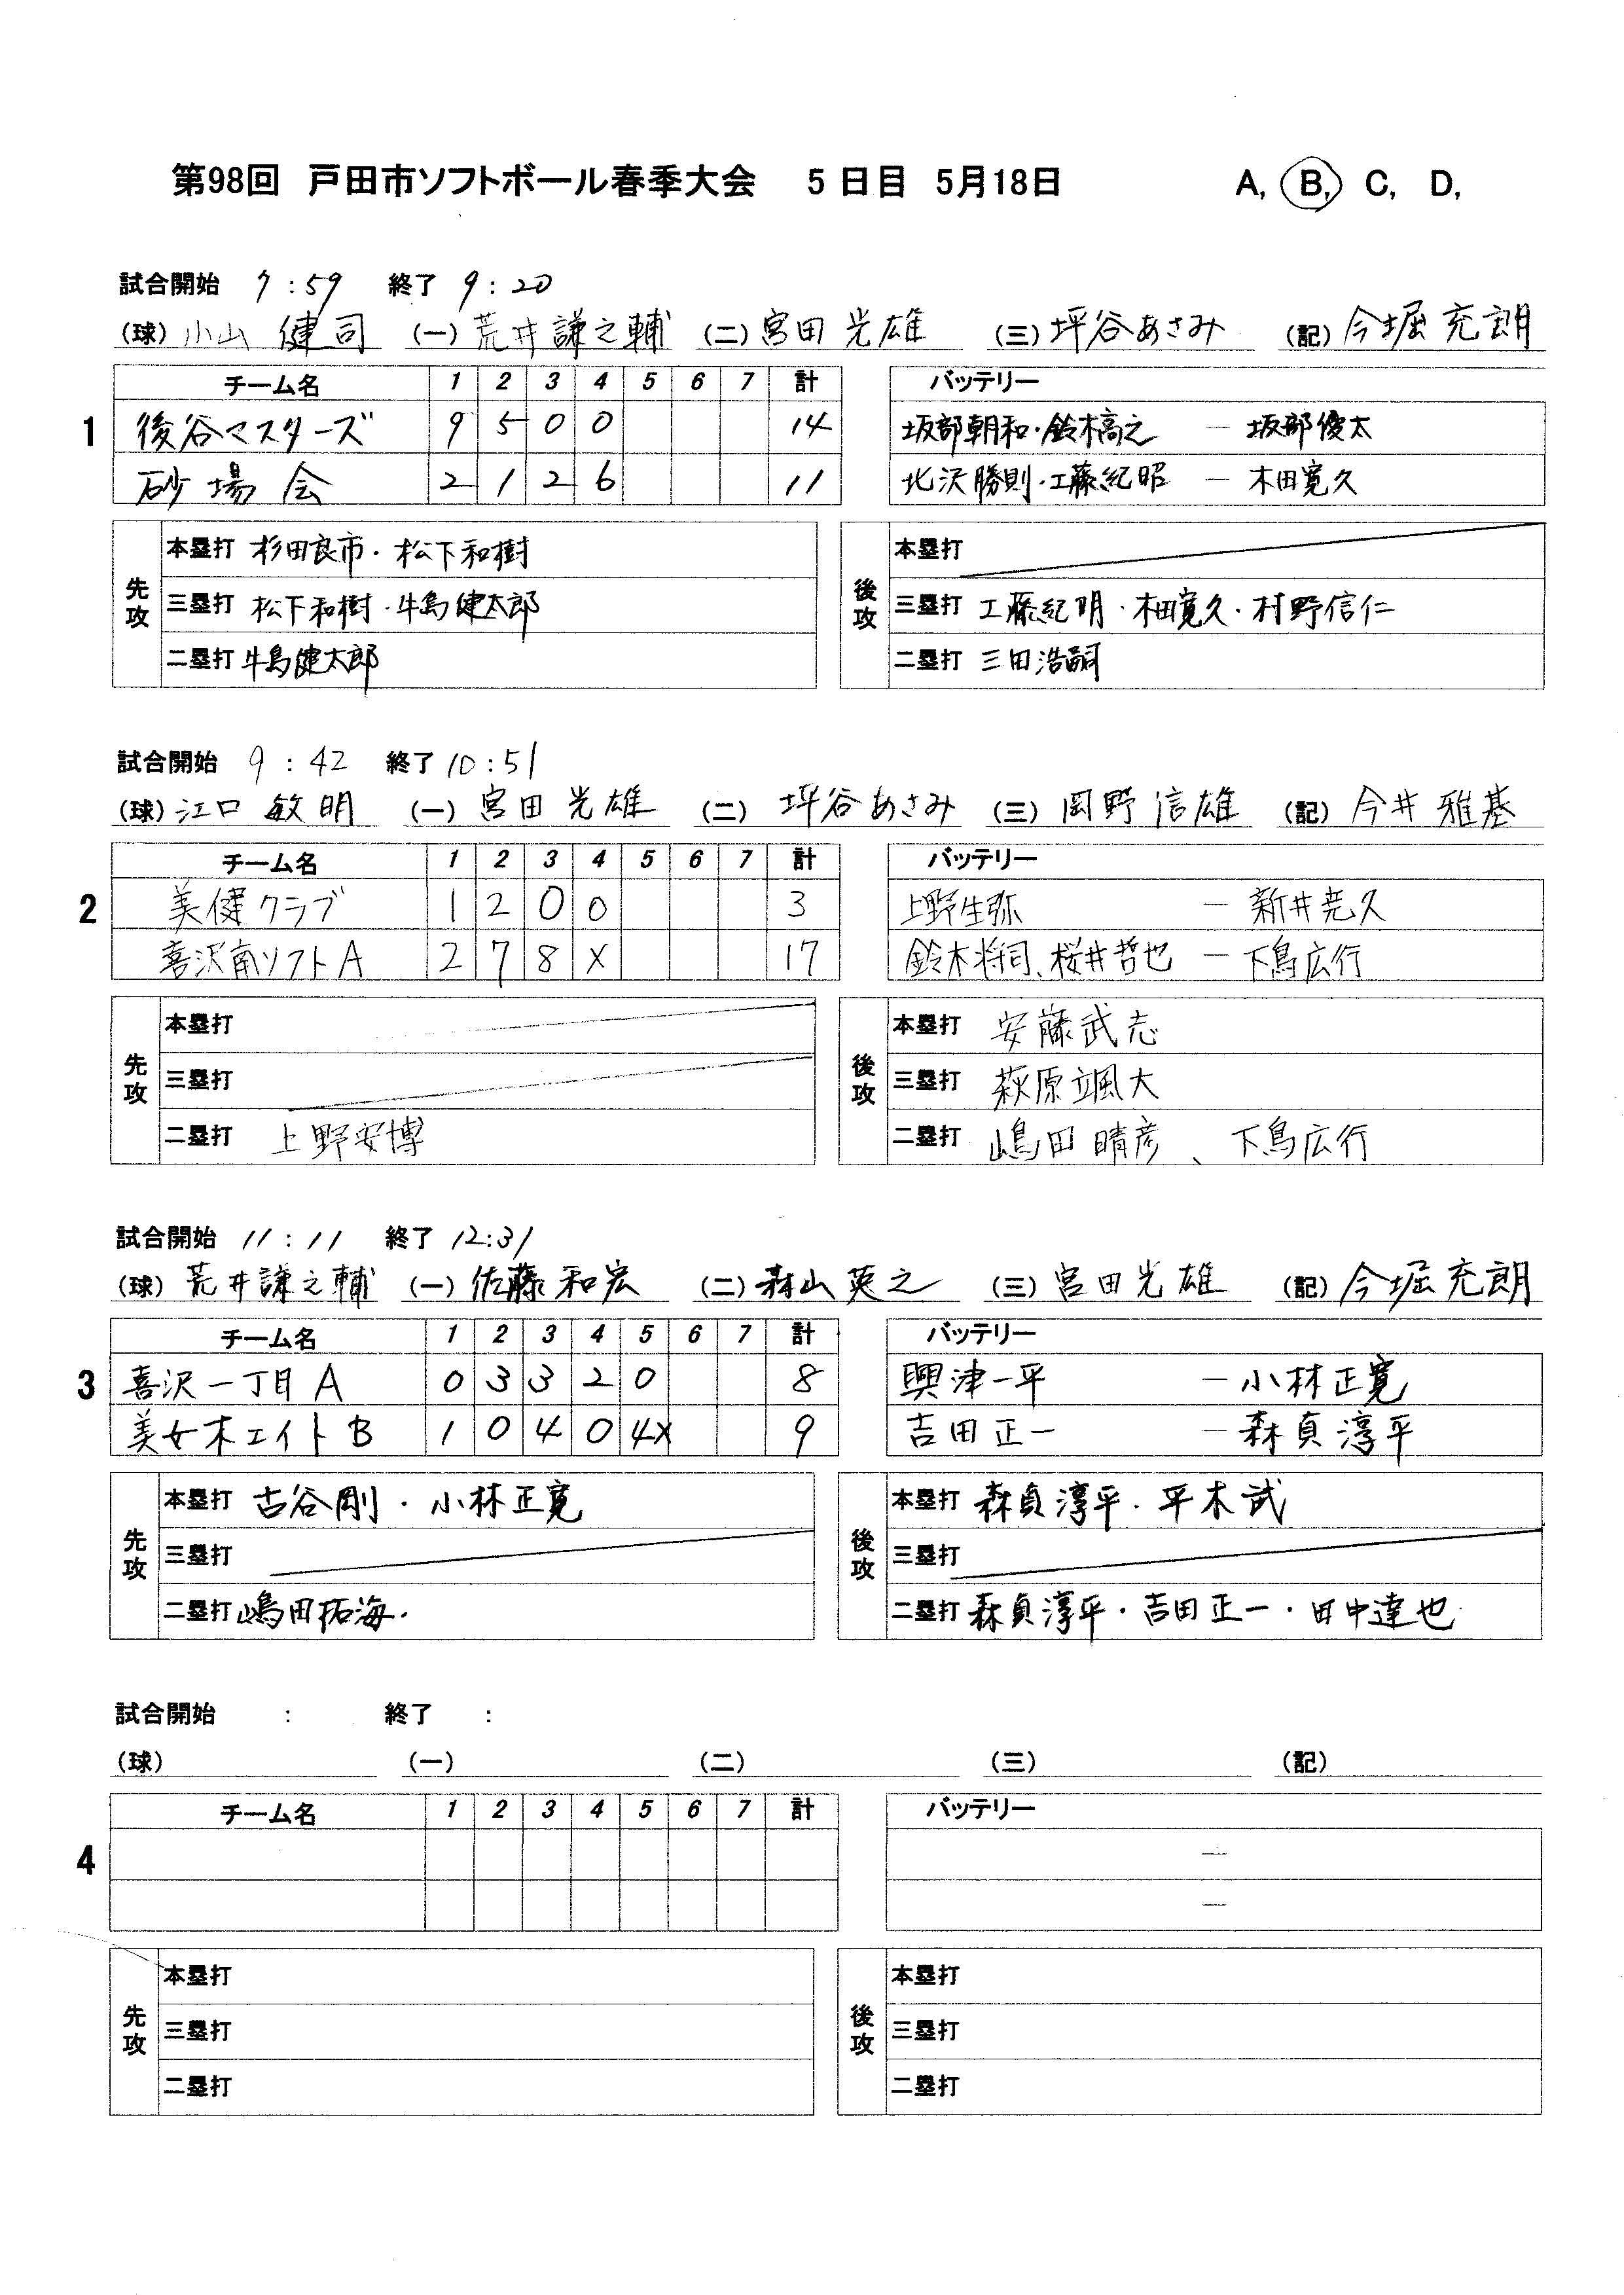 第98回 戸田市ソフトボール春季大会 5日目 5月18日 A, B, C, D,
試合開始 7:59 終了 9:20
(球) 小山 健司 (一) 荒井謙之輔 (二) 宮田 光雄 (三) 坪谷あさみ (記) 今堀 充朗
チーム名 1 2 3 4 5 6 7 計 バッテリー
1 後谷マスターズ 9 5 0 0 14 坂部朝和・鈴木高之 ー 坂部俊太
砂場会 2 1 2 6 11 北沢勝則・工藤紀昭 ー 木田寛久
先攻 本塁打 杉田良市・松下和樹 後攻 本塁打
三塁打 松下和樹・牛島健太郎 三塁打 工藤紀明・木田寛久・村野信仁
二塁打 牛島健太郎 二塁打 三田浩嗣
試合開始 9:42 終了 10:51
(球) 江口 敏明 (一) 宮田 光雄 (二) 坪谷あさみ (三) 岡野 信雄 (記) 今井 雅基
チーム名 1 2 3 4 5 6 7 計 バッテリー
2 美健クラブ 1 2 0 0 3 上野生弥 ー 新井尭久
喜沢南ソフトA 2 7 8 X 17 鈴木将司、桜井哲也 ー 下鳥広行
先攻 本塁打 後攻 本塁打 安藤武志
三塁打 三塁打 萩原颯大
二塁打 上野安博 二塁打 嶋田晴彦、下鳥広行
試合開始 11:11 終了 12:31
(球) 荒井謙之輔 (一) 佐藤和宏 (二) 森山英之 (三) 宮田光雄 (記) 今堀充朗
チーム名 1 2 3 4 5 6 7 計 バッテリー
3 喜沢一丁目A 0 3 3 2 0 8 興津一平 ー 小林正寛
美女木エイトB 1 0 4 0 4X 9 吉田正一 ー 森貞淳平
先攻 本塁打 古谷剛・小林正寛 後攻 本塁打 森貞淳平・平木武
三塁打 三塁打
二塁打 嶋田拓海・ 二塁打 森貞淳平・吉田正一・田中達也
試合開始 : 終了 :
(球) (一) (二) (三) (記)
チーム名 1 2 3 4 5 6 7 計 バッテリー
4 ー
ー
先攻 本塁打 後攻 本塁打
三塁打 三塁打
二塁打 二塁打